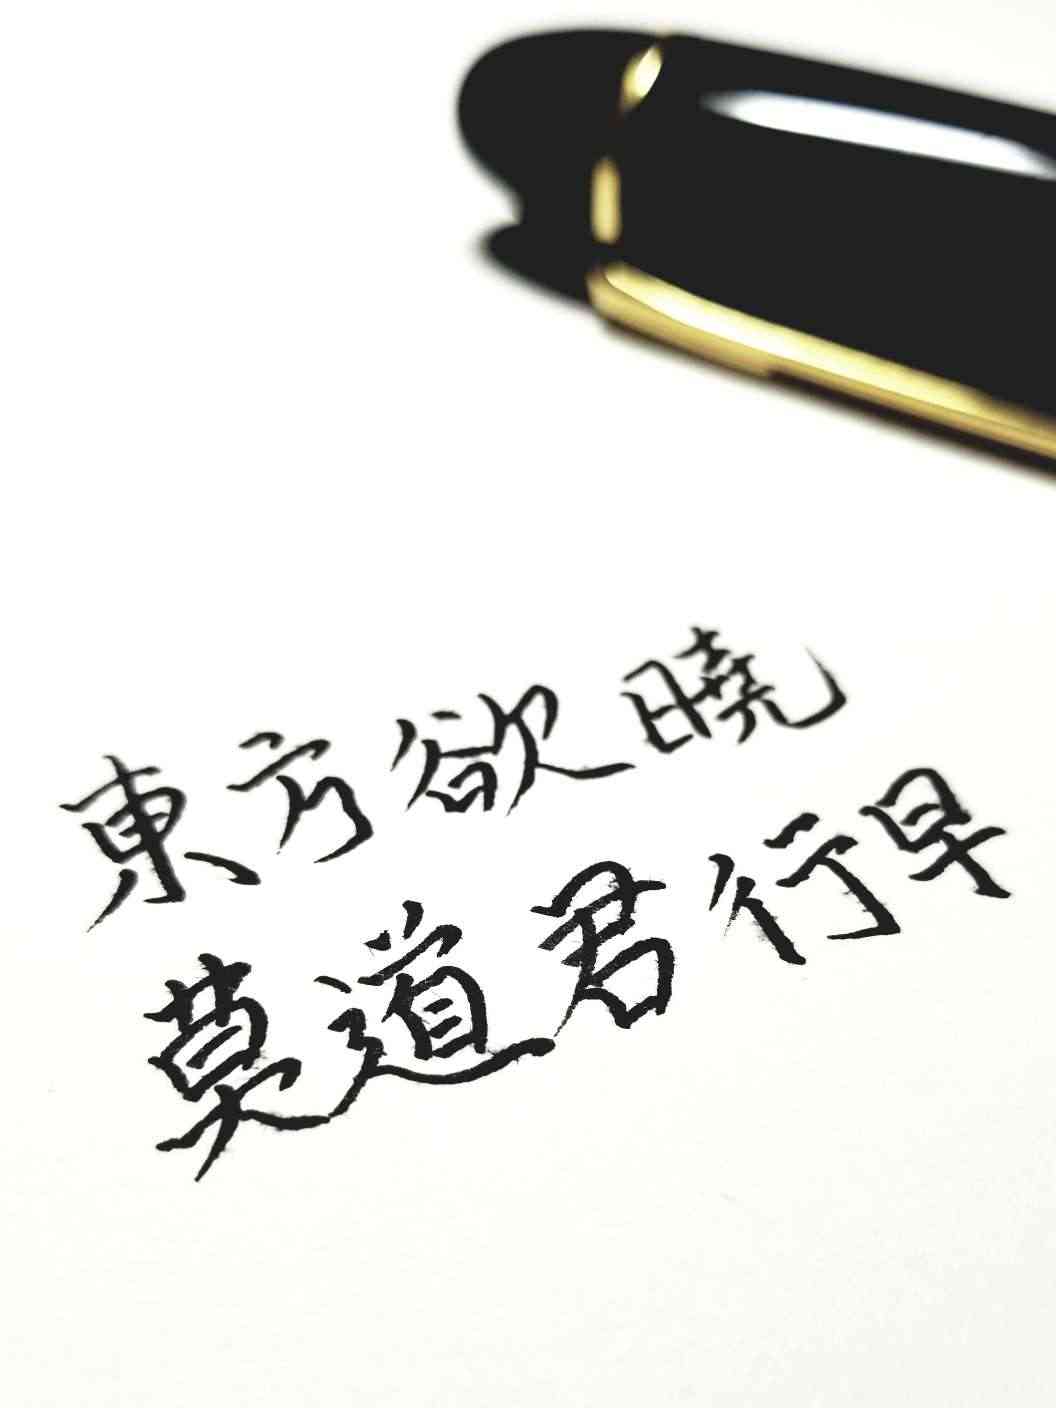 東方欲曉
莫道君行早